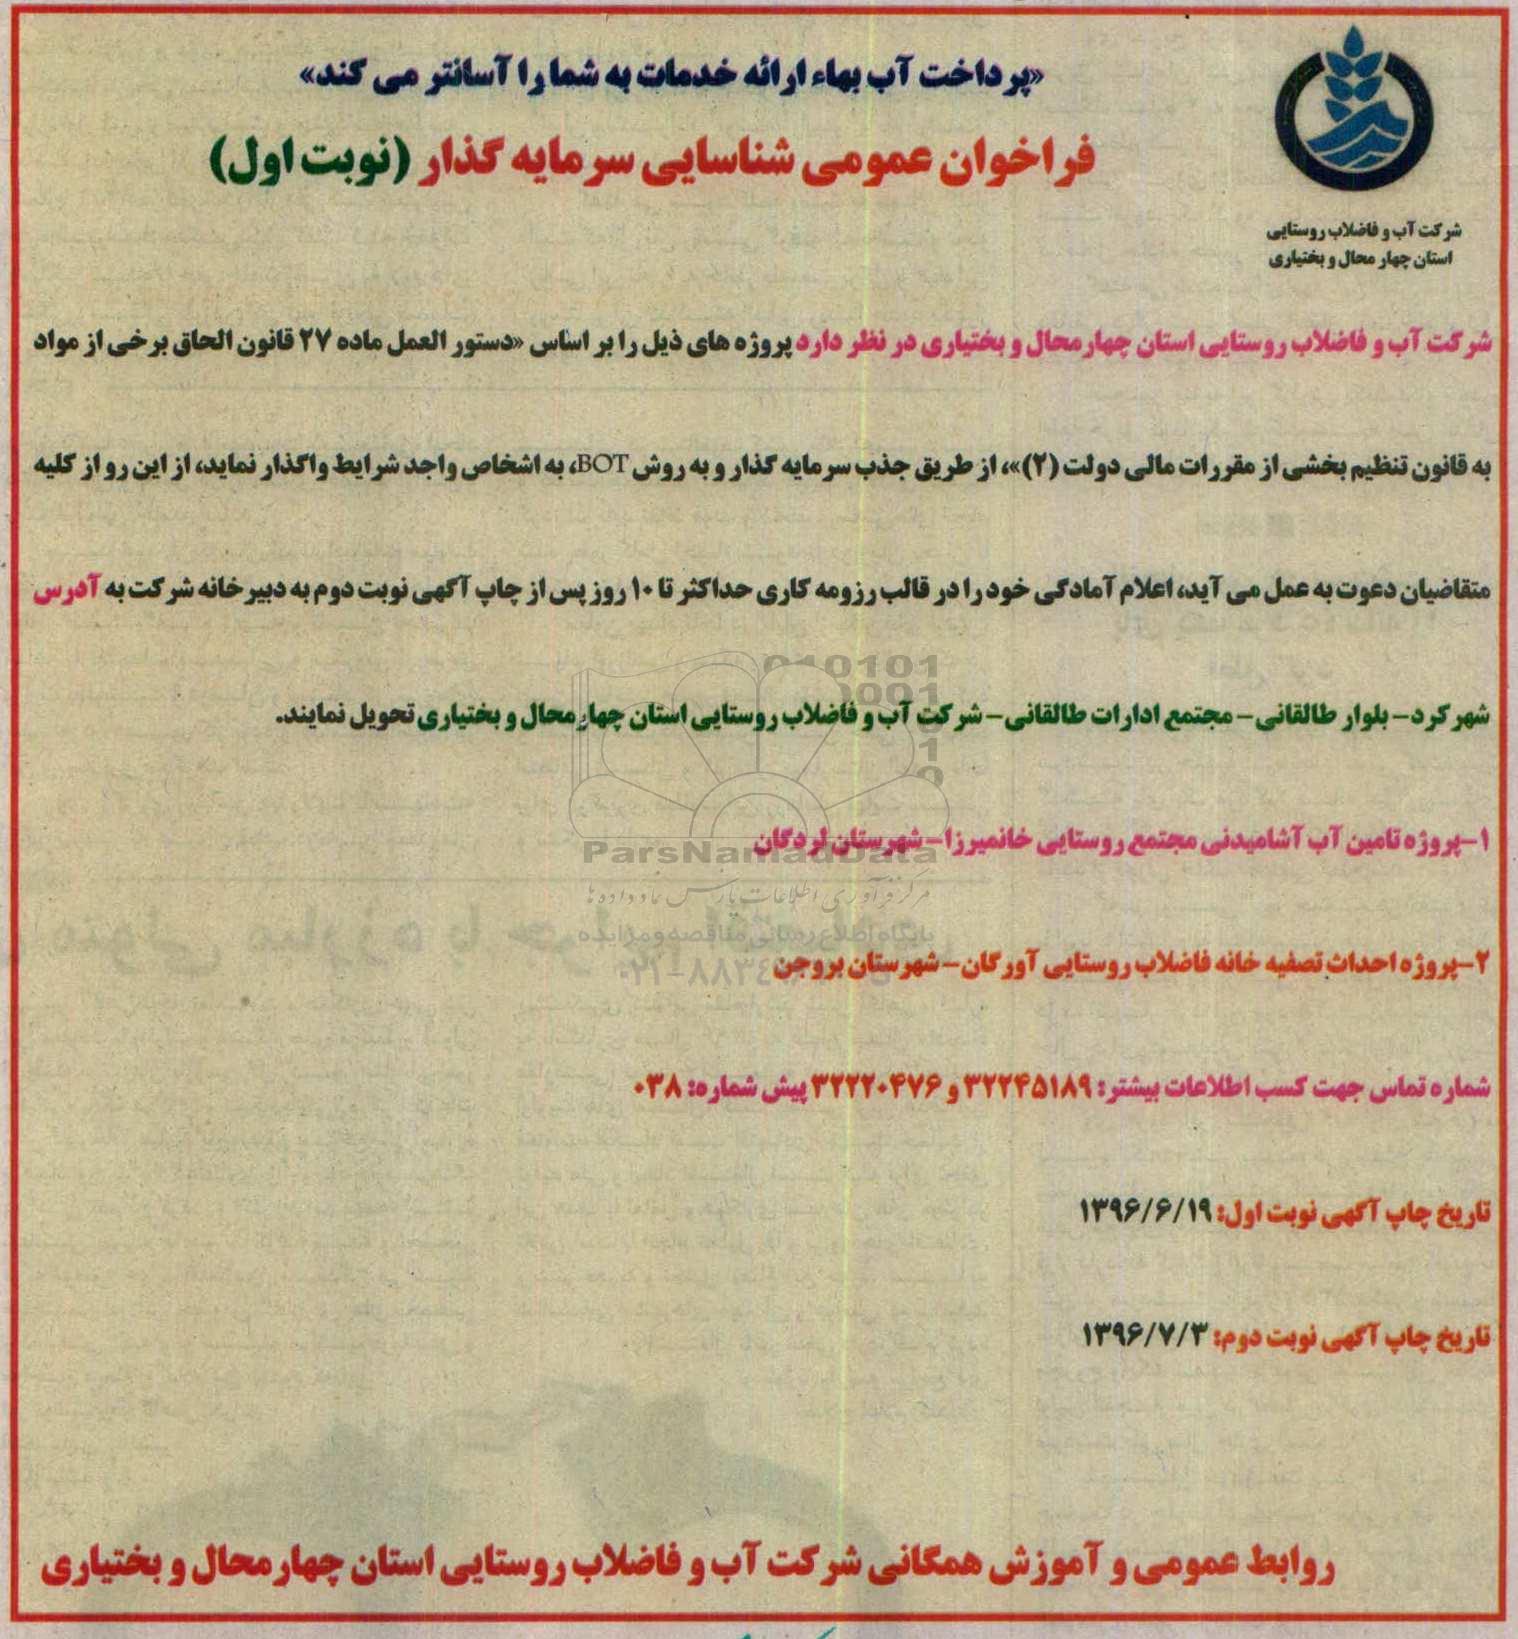 «پرداخت آب بهاء ارائه خدمات به شما را آسانتر می کند»
فراخوان عمومی شناسایی سرمایه گذار (نوبت اول)
شرکت آب و فاضلاب روستایی
استان چهار محال و بختیاری
شرکت آب و فاضلاب روستایی استان چهارمحال و بختیاری در نظر دارد پروژه های ذیل را بر اساس «دستور العمل ماده ۲۷ قانون الحاق برخی از مواد
به قانون تنظیم بخشی از مقررات مالی دولت (۲)»، از طریق جذب سرمایه گذار و به روش BOT، به اشخاص واجد شرایط واگذار نماید، از این رو از کلیه
متقاضیان دعوت به عمل می آید، اعلام آمادگی خود را در قالب رزومه کاری حداکثر تا ۱۰ روز پس از چاپ آگهی نوبت دوم به دبیرخانه شرکت به آدرس
شهرکرد- بلوار طالقانی- مجتمع ادارات طالقانی- شرکت آب و فاضلاب روستایی استان چهارمحال و بختیاری تحویل نمایند.
۱-پروژه تامین آب آشامیدنی مجتمع روستایی خانمیرزا- شهرستان لردگان
ParsNamadData
مرکز فرآوری اطلاعات پارس نماد داده ها
پایگاه اطلاع رسانی مناقصه و مزایده
۲-پروژه احداث تصفیه خانه فاضلاب روستایی آورگان- شهرستان بروجن
شماره تماس جهت کسب اطلاعات بیشتر: ۳۲۲۴۵۱۸۹ و ۳۲۲۲۰۴۷۶ پیش شماره: ۰۳۸
تاریخ چاپ آگهی نوبت اول: ۱۳۹۶/۶/۱۹
تاریخ چاپ آگهی نوبت دوم: ۱۳۹۶/۷/۳
روابط عمومی و آموزش همگانی شرکت آب و فاضلاب روستایی استان چهارمحال و بختیاری